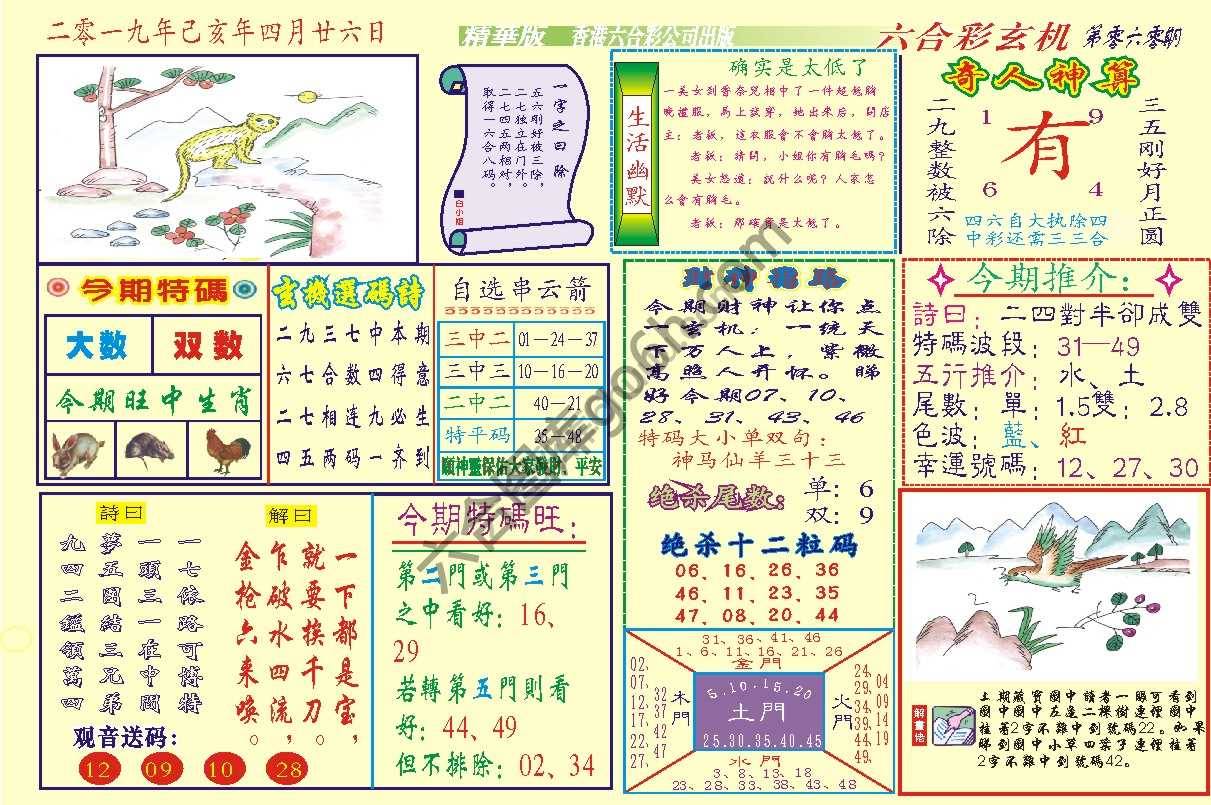 二零一九年己亥年四月廿六日
精華版 香港六合彩公司出版
六合彩玄机 第零六零期
一字之曰 除
五六刚立好被三除,
二七独立在门外,
二七四五两相对,
取得一六合八码。
白小姐
生活幽默
确实是太低了
一美女到香奈兒相中了一件超低胸
晚禮服,馬上試穿,她出來后,問店
主:老板,這衣服會不會胸太低了。
老板:請問,小姐你有胸毛嗎?
美女怒道:説什么呢?人家怎
么會有胸毛。
老板:那確實是太低了。
奇人神算
三五刚好月正圆
二九整数被六除
1 9
有
6 4
四六自大执除四
中彩还需三三合
今期特碼
大数 双数
今期旺中生肖
玄機選碼詩
二九三七中本期
六七合数四得意
二七相连九必生
四五两码一齐到
自选串云箭
三中二 01—24—37
三中三 10—16—20
二中二 40—21
特平码 35—48
願神靈保佑大家發財、平安
今期财神让你点
一玄机:一统天
下万人上,紫橄
高照人开怀。睇
好今期07、10、
28、31、43、46
特码大小单双句:
神马仙羊三十三
绝杀尾数: 单:6
双:9
绝杀十二粒码
06、16、26、36
46、11、23、35
47、08、20、44
今期推介:
詩曰:二四對半卻成雙
特碼波段:31—49
五行推介:水、土
尾數:單:1.5雙:2.8
色波:藍、紅
幸運號碼:12、27、30
詩曰
一七依路可博特
一頭三一在中間
夢五圍結三兄弟
九四二鑑領萬四
解曰
一下都是宝。
就要挨千刀,
乍破水四流。
金枪六来唤
观音送码:
12 09 10 28
今期特碼旺:
第二門或第三門
之中看好:16、
29
若轉第五門則看
好:44、49
但不排除:02、34
31、36、41、46
1、6、11、16、21、26
金門
02、07、12、17、22、27、
32、37、42、47
木門
5.10.15.20
土門
25.30.35.40.45
火門
24、29、34、39、44、49、
04、09、14、19
水門
3、8、13、18
23、28、33、38、43、48
解畫佬
上期藏寶圖中讀者一睇可看到
圖中圖中左邊二棵樹連理圖中
挂着2字不難中到號碼22。如果
睇到圖中小草四葉子連理挂着
2字不難中到號碼42。